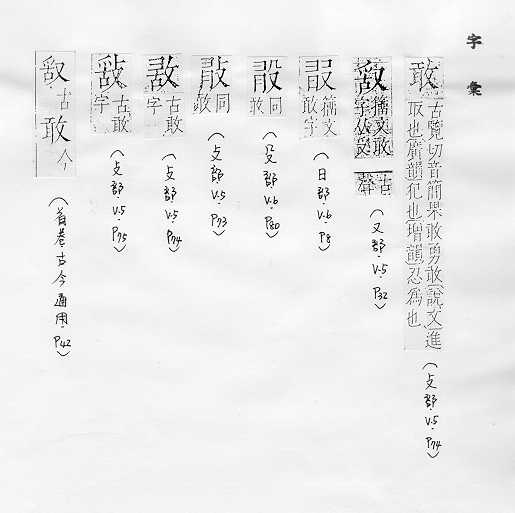 字彙
敢 古覽切音簡果敢勇敢說文進
取也廣韻犯也增韻忍爲也
(攴部.V.5.P74)
籒文敢
字从𠬪
古聲
(又部.V.5.P32)
籒文
敢字
(日部.V.6.P8)
同
敢
(殳部.V.6.P80)
同
敢
(攴部.V.5.P73)
古敢
字
(攴部.V.5.P74)
古敢
字
(攴部.V.5.P75)
古
敢 今
(首卷古今通用.P42)